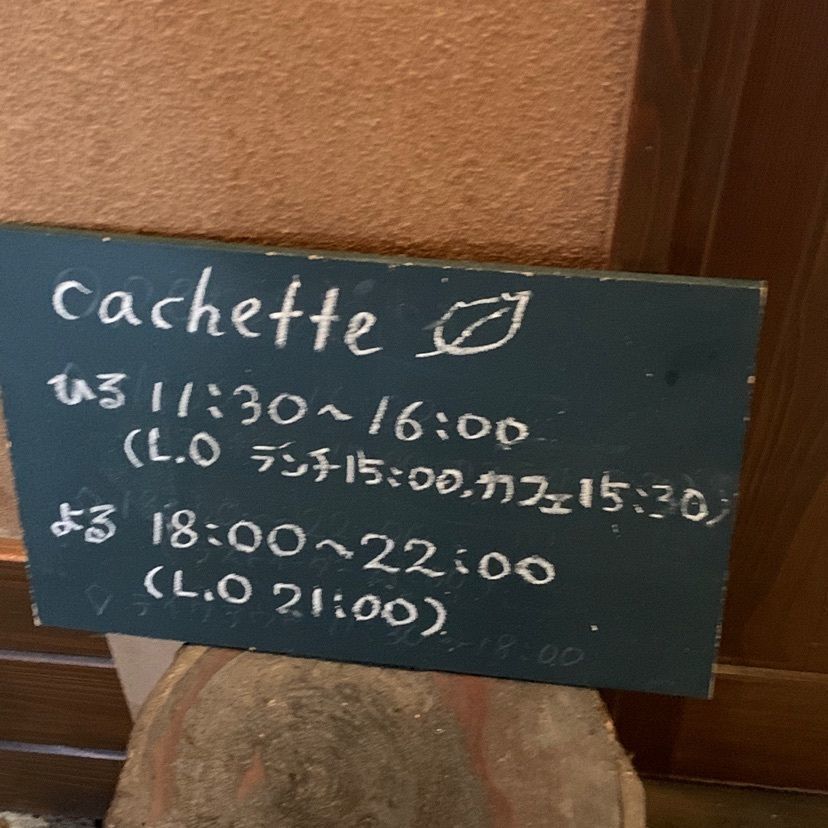 cachette
ひる 11:30~16:00
(L.O ランチ15:00.カフェ15:30)
よる 18:00~22:00
(L.O 21:00)